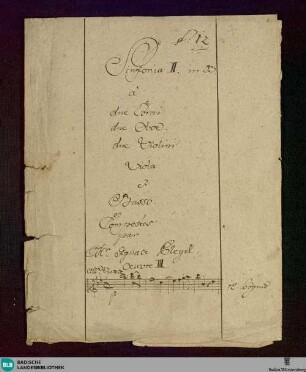 12
Sinfonia II. in
à
due Corni
due Oboe
due Violini
Viola
e
Basso
Composée
par
Mr. Ignace Pleyel
Oeuvre III
BLB
BADISCHE
LANDESBIBLIOTHEK
Baden-Württemberg